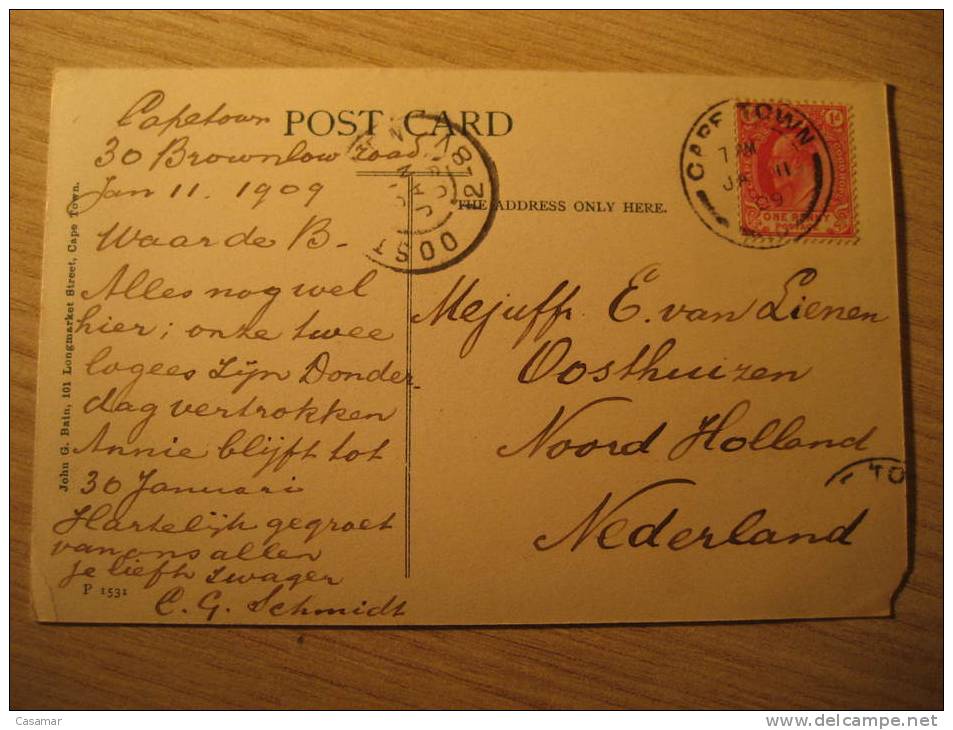 POST CARD
Capetown
30 Brownlow road
Jan 11. 1909
Waarde B-
Alles nog wel
hier; onze twee
logees zijn Donder-
dag vertrokken
Annie blijft tot
30 Januari
Hartelijk gegroet
van ons allen
je liefh zwager
C. G. Schmidt
P 1531
John G. Bain, 101 Longmarket Street, Cape Town.
THE ADDRESS ONLY HERE.
Mejuffr. E. van Lienen
Oosthuizen
Noord Holland
Nederland
CAPE TOWN
JA 11
09
ONE PENNY
1d
OOST
TO
Casamar
www.delcampe.net